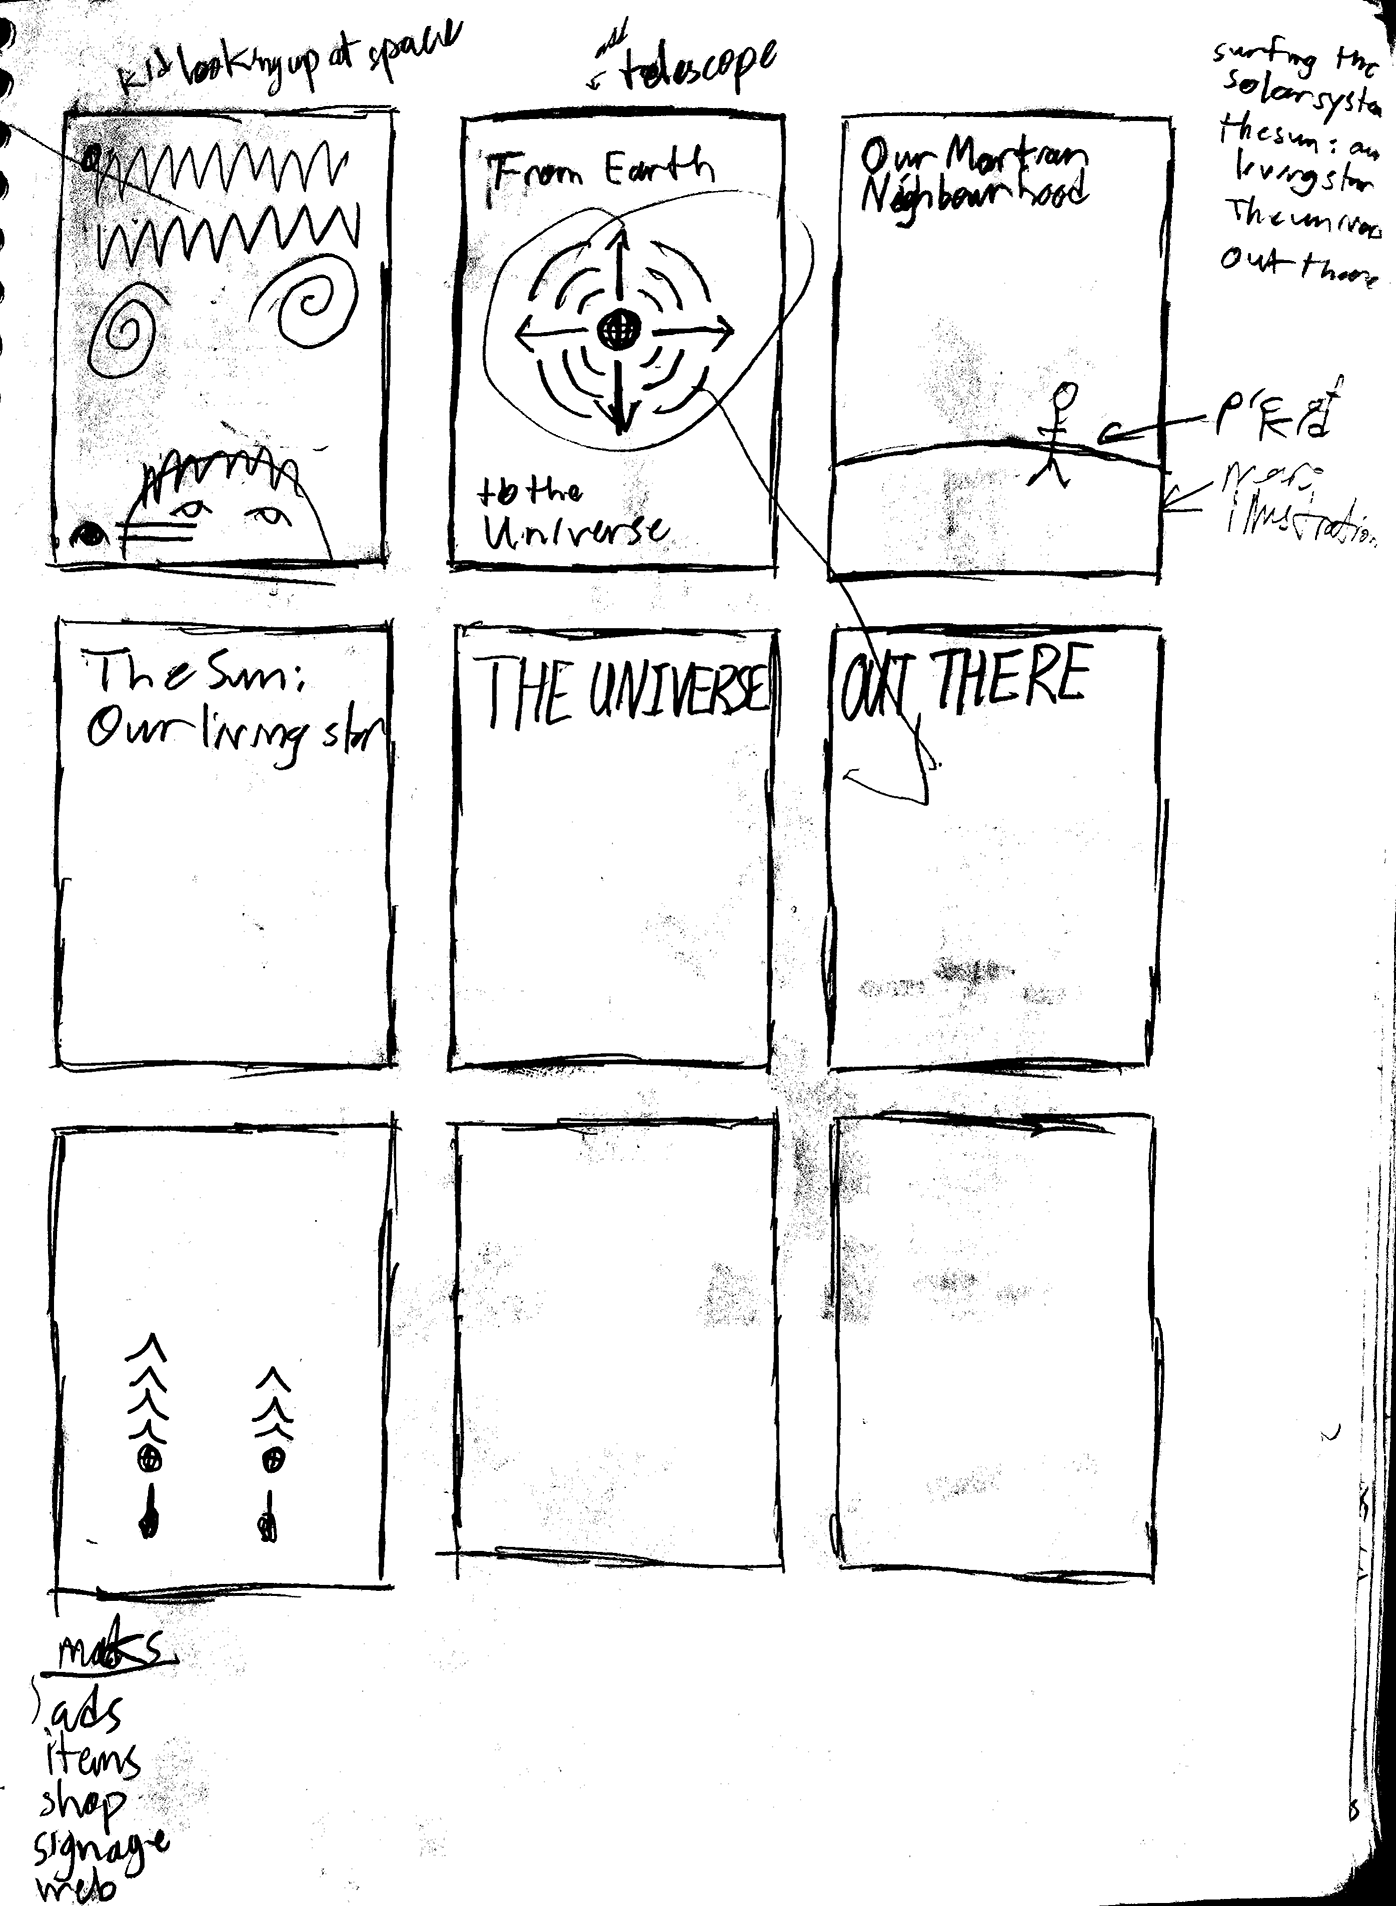 kid looking up at space
add
telescope
surfing the
solar syste
the sun: our
living star
The univers
Out there
From Earth
to the
Universe
Our Martian
Neighbourhood
pic of
kid
mars
illustration
The Sun:
Our living star
THE UNIVERSE
OUT THERE
ads
items
shop
signage
web